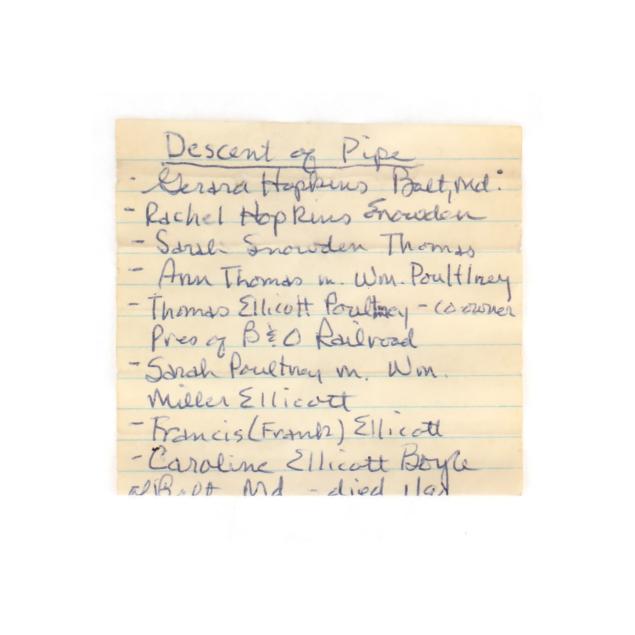 Descent of Pipe
- Gerard Hopkins Balt, Md.
- Rachel Hopkins Snowden
- Sarah Snowden Thomas
- Ann Thomas m. Wm. Poultney
- Thomas Ellicott Poultney - co owner
Pres of B&O Railroad
- Sarah Poultney m. Wm.
Miller Ellicott
- Francis (Frank) Ellicott
- Caroline Ellicott Boyle
of Balt Md - died